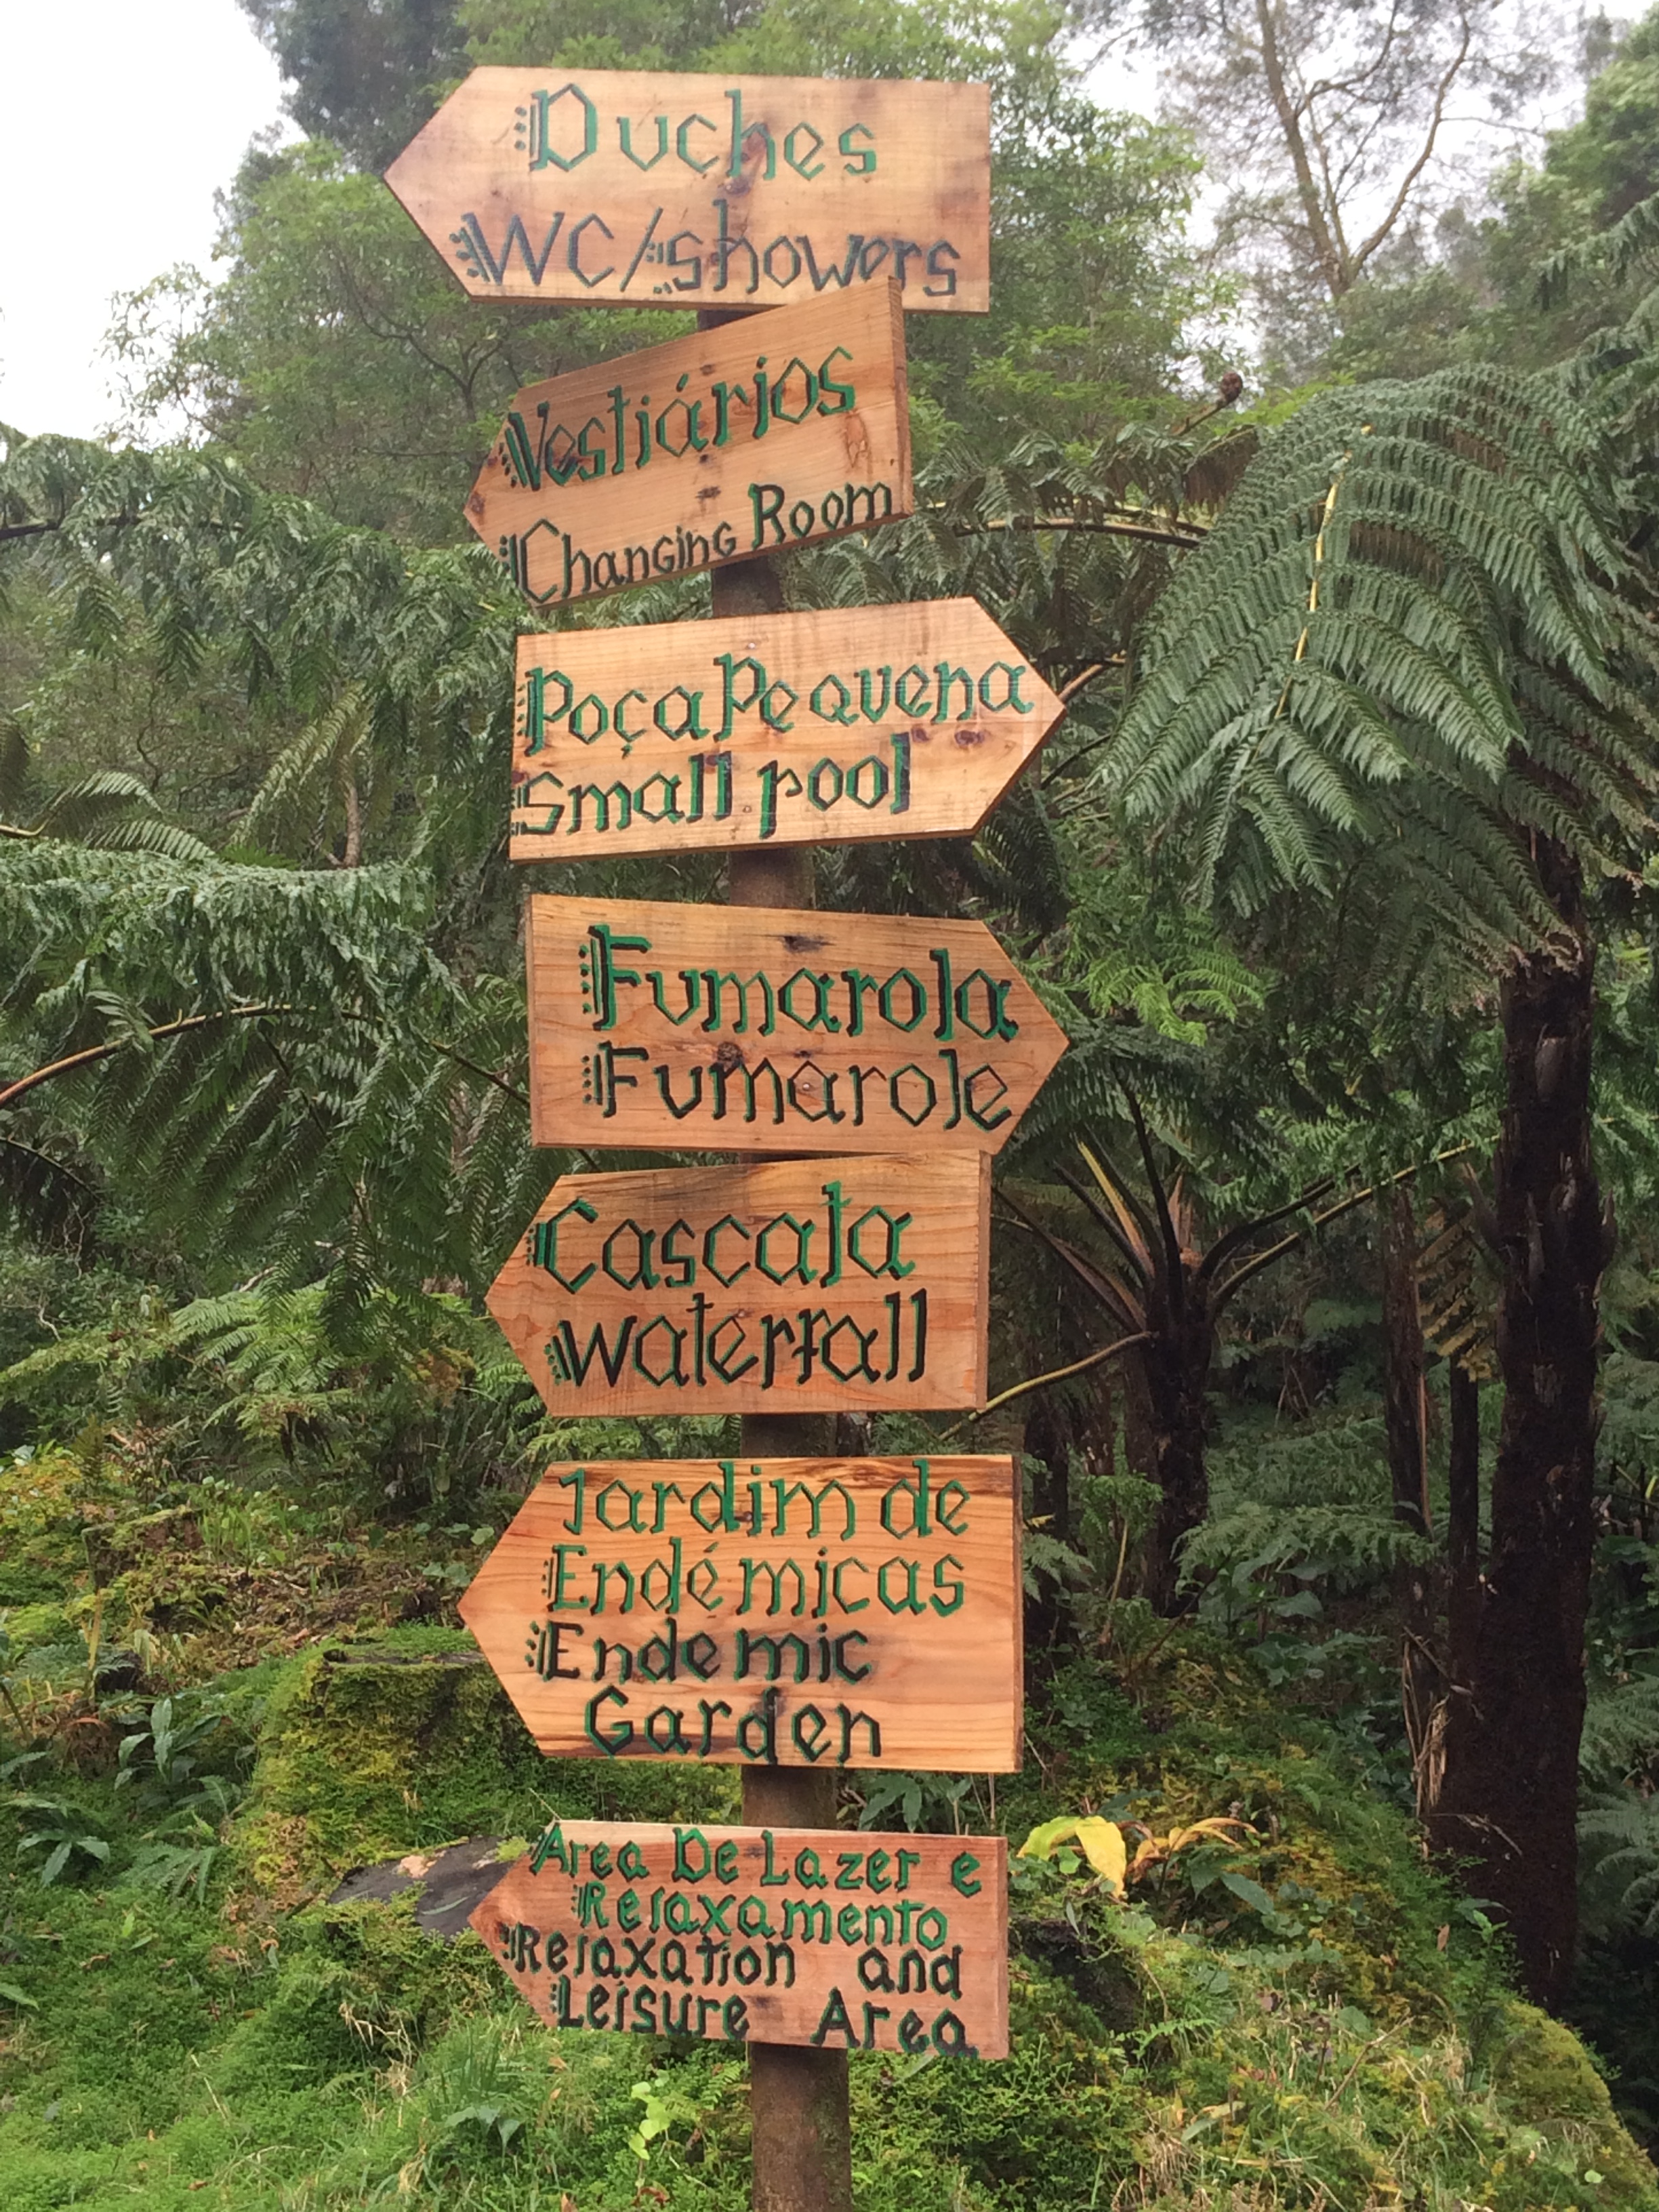 Duches
WC/showers
Vestiários
Changing Room
Poça Pequena
Small pool
Fumarola
Fumarole
Cascata
waterfall
Jardim de
Endémicas
Endemic
Garden
Area De Lazer e
Relaxamento
Relaxation and
Leisure Area